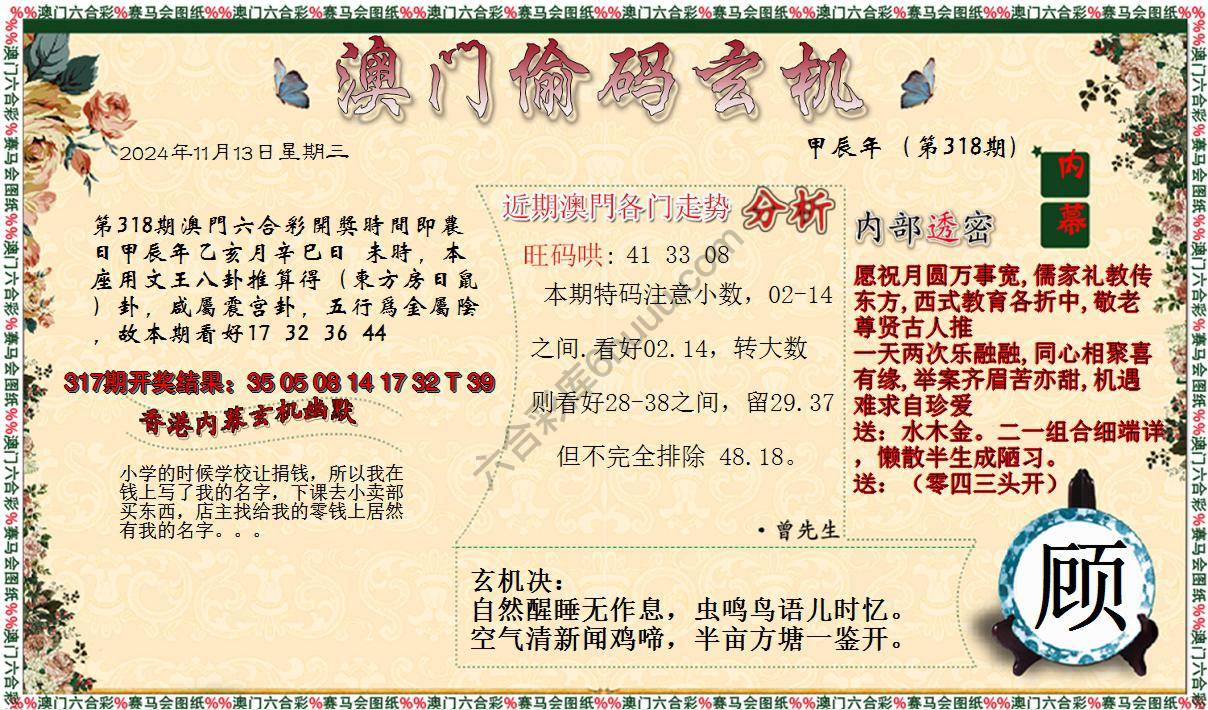 %%澳门六合彩%赛马会图纸%%澳门六合彩%赛马会图纸%%澳门六合彩%赛马会图纸%%澳门六合彩%赛马会图纸%%澳门六合彩%赛马会图纸%%澳门六合彩%赛马会图纸%%
澳门偷码玄机
2024年11月13日星期三
甲辰年（第318期）
内幕
第318期澳門六合彩開獎時間即農
日甲辰年乙亥月辛巳日 未時，本
座用文王八卦推算得（東方房日鼠
）卦，咸屬震宫卦，五行爲金屬陰
，故本期看好17 32 36 44
317期开奖结果：35 05 08 14 17 32 T 39
香港内幕玄机幽默
小学的时候学校让捐钱，所以我在
钱上写了我的名字，下课去小卖部
买东西，店主找给我的零钱上居然
有我的名字。。。
近期澳門各门走势 分析
旺码哄: 41 33 08
本期特码注意小数，02-14
之间.看好02.14，转大数
则看好28-38之间，留29.37
但不完全排除 48.18。
·曾先生
内部透密
愿祝月圆万事宽,儒家礼教传
东方,西式教育各折中,敬老
尊贤古人推
一天两次乐融融,同心相聚喜
有缘,举案齐眉苦亦甜,机遇
难求自珍爱
送：水木金。二一组合细端详
，懒散半生成陋习。
送：（零四三头开）
玄机决：
自然醒睡无作息，虫鸣鸟语儿时忆。
空气清新闻鸡啼，半亩方塘一鉴开。
顾